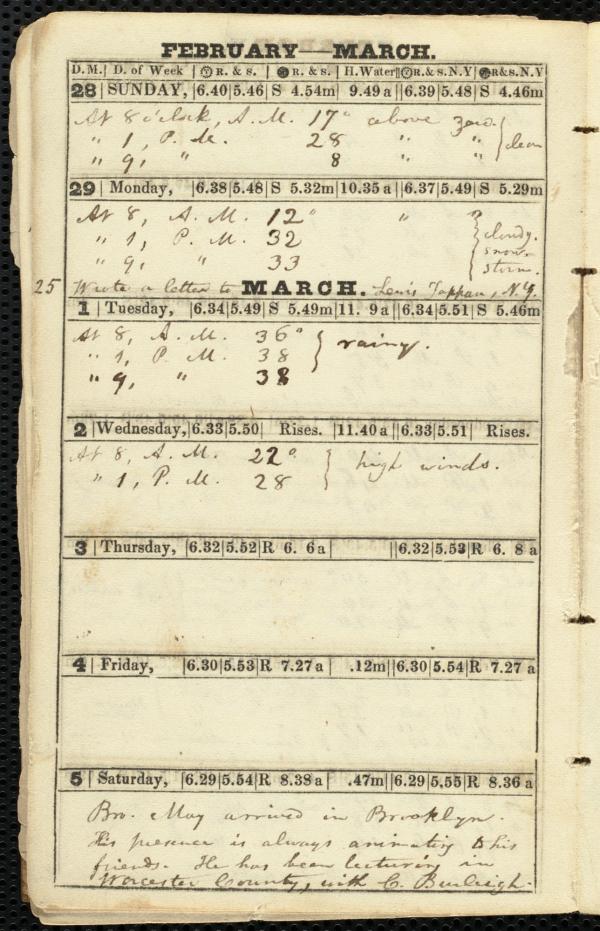 FEBRUARY—MARCH.
D.M. | D. of Week | R. & s. | R. & s. | H. Water | R. & s. N.Y | R&s. N.Y
28 | SUNDAY, | 6.40 | 5.46 | S 4.54m | 9.49 a | 6.39 | 5.48 | S 4.46m
At 8 o'clock, A. M. 17° above zero.
" 1, P. M. 28 " " } clear
" 9, " 8 " "
29 | Monday, | 6.38 | 5.48 | S 5.32m | 10.35 a | 6.37 | 5.49 | S 5.29m
At 8, A. M. 12° " "
" 1, P. M. 32 } cloudy.
" 9, " 33 snow-
storm.
25 Wrote a letter to MARCH. Lewis Tappan, N.Y.
1 | Tuesday, | 6.34 | 5.49 | S 5.49m | 11. 9 a | 6.34 | 5.51 | S 5.46m
At 8, A. M. 36°
" 1, P. M. 38 } rainy.
" 9, " 38
2 | Wednesday, | 6.33 | 5.50 | Rises. | 11.40 a | 6.33 | 5.51 | Rises.
At 8, A. M. 22° } high winds.
" 1, P. M. 28
3 | Thursday, | 6.32 | 5.52 | R 6. 6 a | | 6.32 | 5.53 | R 6. 8 a
4 | Friday, | 6.30 | 5.53 | R 7.27 a | .12m | 6.30 | 5.54 | R 7.27 a
5 | Saturday, | 6.29 | 5.54 | R 8.38 a | .47m | 6.29 | 5.55 | R 8.36 a
Bro. May arrived in Brooklyn.
His presence is always animating to his
friends. He has been lecturing in
Worcester County, with C. Burleigh.